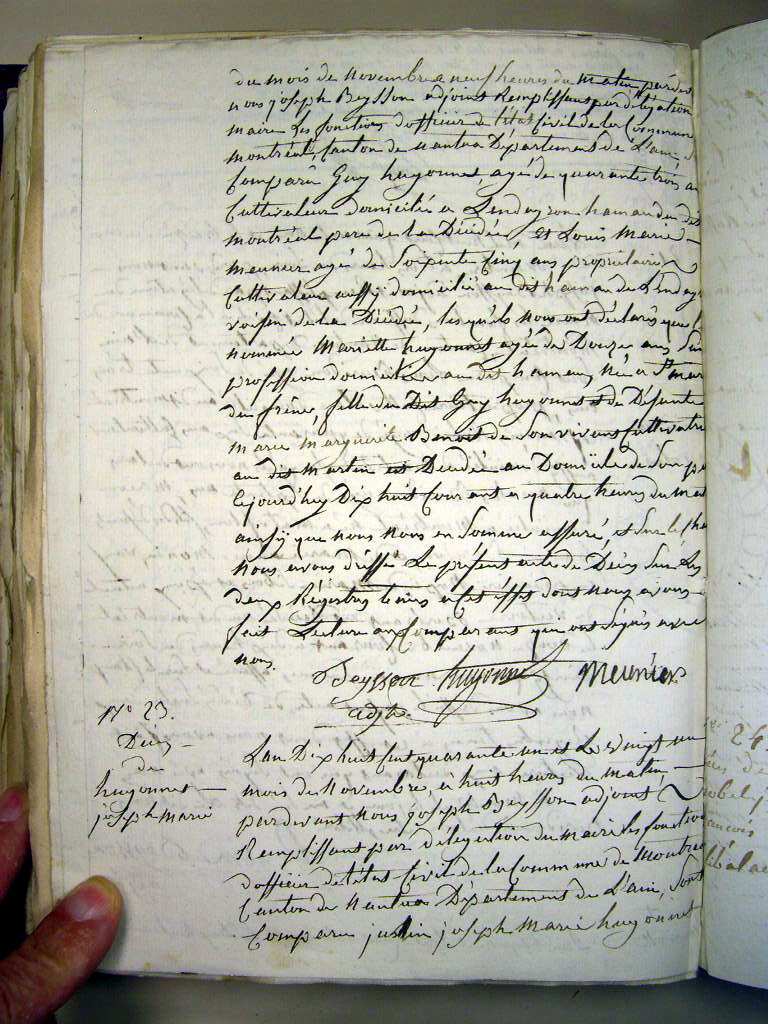 du mois de novembre a neuf heures du matin par devant
nous joseph Beysson adjoint Remplissant par délégation
maire les fonctions d'officier de l'état Civil de la Commune
montréal, Canton de nantua Département de L'ain,
Comparû Guy huyonnet agé de quarante trois an
Cultivateur domicilié a Landeyron hamau du dit
montréal pere de la Décédée, et Louis Marie
meunier agé de Soixente cinq ans propriétaire
Cultivateur aussy domicilié au dit hamau de Landey
voisin de la Décédée, les quels nous ont déclarés que l
nommée Mariette huyonnet agée de Douze ans, San
profession domiciliée au dit hameau, Née a St mar
du frêne, fille du Dit Guy huyonnet et de Défunte
marie marguerite Benoit de Son vivant Cultivatri
au dit Martin est Décédée au Domicile de Son pe
cejourd'huy Dix huit Courant a quatre heures du mat
ainsÿ que nous nous en Somme assuré, et Sur le Cha
nous avons dréssé Le présent acte de Décès Sur Les
deux Régistres tenus a Cet éffet dont nous avons
fait Lecture aux Comparants qui ont Signés avec
nous.
Beysson huyonnet Meunier
adjt.
N° 23.
Décès
de
huyonnet
joseph marie
L'an Dix huit Cent quarante un et Le vingt un
mois de Novembre, à huit heures du matin,
par devant nous joseph Beysson adjoint
Remplissant par délégation du maire les fonction
d'officier de l'état Civil de la Commune de Montréa
Canton de Nantua Département de L'ain, Sont
Comparu justin joseph Marie huyonnet
24